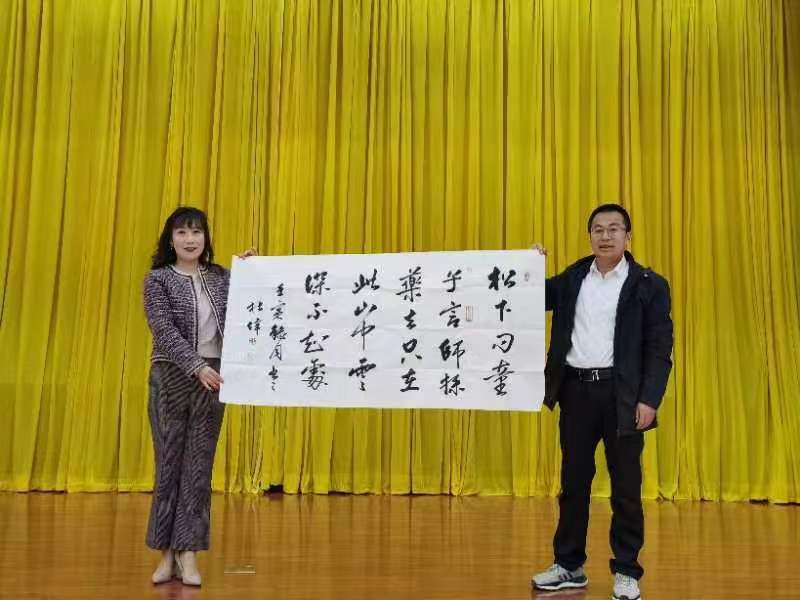 松下问童
子言師採
藥去只在
此山中雲
深不知處
壬寅月書之
杜偉